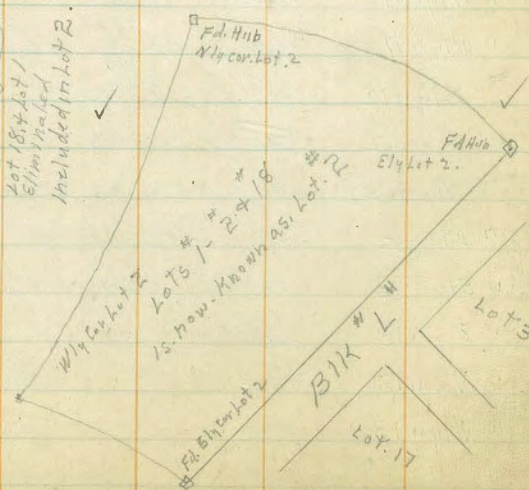 Lot 18, & Lot 1
Eliminated
Included in Lot 2
Fd. Hub
Nly cor. Lot. 2
Fd Hub
Ely Lot 2.
Wly Cor Lot 2
Lots #1- #2 & #18
is. now. Known as. Lot. #2
Fd. Ely Cor Lot 2
Blk "L"
Lot. 17
Lot 3